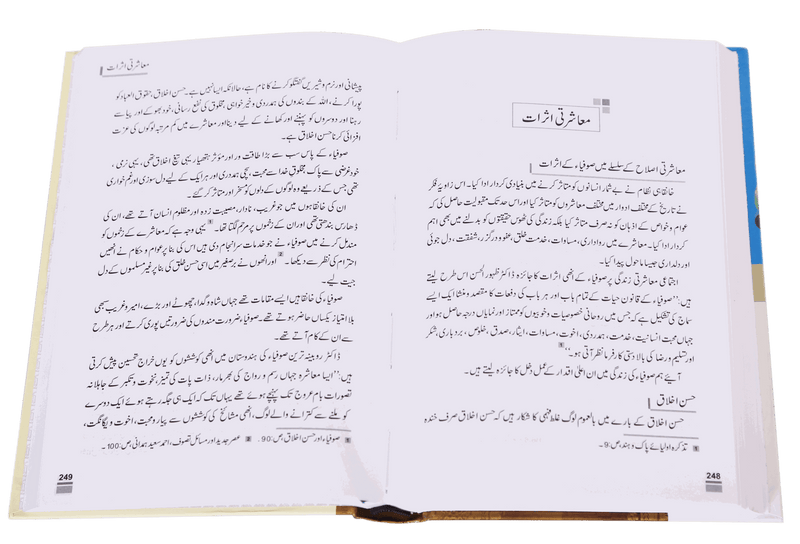 معاشرتی اثرات
معاشرتی اصلاح کے سلسلے میں صوفیاء کے اثرات
خانقاہی نظام نے بے شمار انسانوں کو متاثر کرنے میں بنیادی کردار ادا کیا۔ اس زاویہ فکر
نے تاریخ کے مختلف ادوار میں مختلف معاشروں کو متاثر کیا اور اس حد تک مقبولیت حاصل کی کہ
عوام و خواص کے اذہان کو نہ صرف متاثر کیا بلکہ زندگی کی ٹھوس حقیقتوں کو بدلنے میں بھی اہم
کردار ادا کیا۔ معاشرے میں رواداری، مساوات، خدمت خلق، عفو و درگزر، شفقت، دل جوئی
اور دلداری جیسا ماحول پیدا کیا۔
اجتماعی معاشرتی زندگی پر صوفیاء کے انھی اثرات کا جائزہ ڈاکٹر ظہور الحسن اس طرح لیتے
ہیں: ”صوفیاء کے قانون حیات کے تمام باب اور ہر باب کی دفعات کا مقصد و منشا ایک ایسے
سماج کی تشکیل ہے کہ جس میں روحانی خصوصیات و خوبیوں کو ممتاز اور نمایاں درجہ حاصل ہو اور
جہاں محبت انسانیت، خدمت، ہمدردی، اخوت، مساوات، ایثار، صدق، خلوص، بردباری، شکر
اور تسلیم و رضا کی بالا دستی کار فرما نظر آتی ہو۔“ 1
آیئے ہم صوفیاء کی زندگی میں ان اعلیٰ اقدار کے عمل دخل کا جائزہ لیتے ہیں۔
حسن اخلاق
حسن اخلاق کے بارے میں بالعموم لوگ غلط فہمی کا شکار ہیں کہ حسن اخلاق صرف خندہ
1 تذکرہ اولیائے پاک و ہند، ص: 9۔
248
معاشرتی اثرات
پیشانی اور نرم و شیریں گفتگو کرنے کا نام ہے، حالانکہ ایسا نہیں ہے۔ حسن اخلاق، حقوق العباد کو
پورا کرنے، اللہ کے بندوں کی ہمدردی و خیر خواہی، مخلوق کی نفع رسانی، خود بھوکے اور پیاسے
رہنا اور دوسروں کو پہننے اور کھانے کے لیے دینا اور معاشرے میں کم مرتبہ لوگوں کی عزت
افزائی کرنا حسن اخلاق ہے۔
صوفیاء کے پاس سب سے بڑا طاقت ور اور مؤثر ہتھیار یہی تیغ اخلاق تھی، یہی نرمی،
خود غرضی سے پاک، مخلوق خدا سے محبت، سچی ہمدردی اور ہر ایک کے لیے دل سوزی اور غم خواری
تھی جس کے ذریعے وہ لوگوں کے دلوں کو مسخر اور متاثر کر گئے۔
ان کی خانقاہوں میں جو غریب، نادار، مصیبت زدہ اور مظلوم انسان آتے تھے، ان کی
ڈھارس بندھتی تھی اور ان کے زخموں پر مرہم لگتا تھا۔ 1 یہی وجہ ہے کہ معاشرے کے زخموں کو
مندمل کرنے میں صوفیاء نے جو خدمات سرانجام دی ہیں اس کی بنا پر عوام و حکام نے انھیں
احترام کی نظر سے دیکھا۔ 2 اور انھوں نے برصغیر میں اسی حسن خلق کی بنا پر غیر مسلموں کے دل
جیت لیے۔
صوفیاء کی خانقاہیں ایسے مقامات تھے جہاں شاہ و گدا، چھوٹے اور بڑے، امیر و غریب سبھی
بلا امتیاز یکساں حاضر ہوتے تھے۔ صوفیاء ضرورت مندوں کی ضرورتیں پوری کرتے اور ہر طرح
سے ان کے کام آتے تھے۔
ڈاکٹر روبینہ ترین صوفیاء کی ہندوستان میں انھی کوششوں کو یوں خراج تحسین پیش کرتی
ہیں: ”ایسا معاشرہ جہاں رسم و رواج کی بھرمار، ذات پات کی تمیز، نخوت و تکبر کے جاہلانہ
تصورات بام عروج تک پہنچے ہوئے تھے یہاں تک کہ ایک ہی جگہ رہتے ہوئے ایک دوسرے
کو ملنے سے کترانے والے لوگ، انھی مشائخ کی کوششوں سے پیار و محبت، اخوت و یگانگت،
1 صوفیاء اور حسن اخلاق، ص: 90۔ 2 عصر جدید اور مسائل تصوف، احمد سعید ہمدانی، ص: 100۔
249